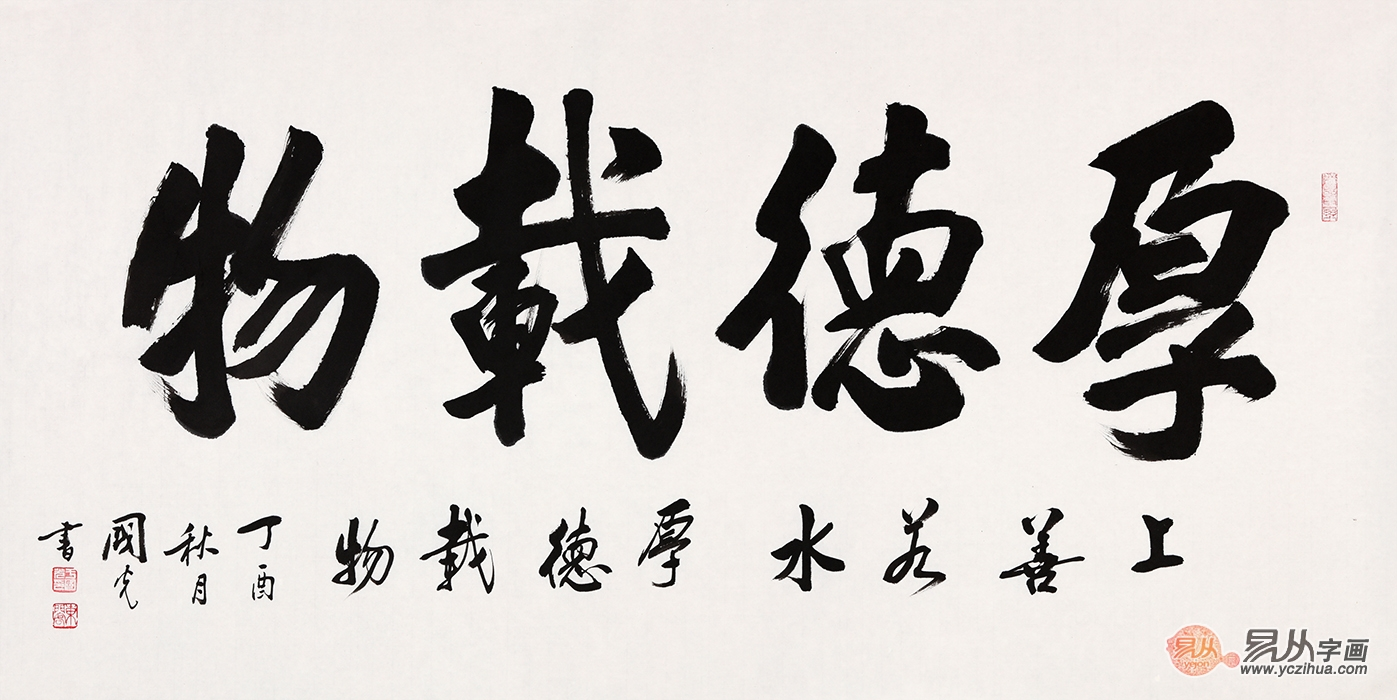 厚德載物
上善若水 厚德載物
丁酉
秋月
國光
書
易从
yejon
易从字画
www.yczihua.com